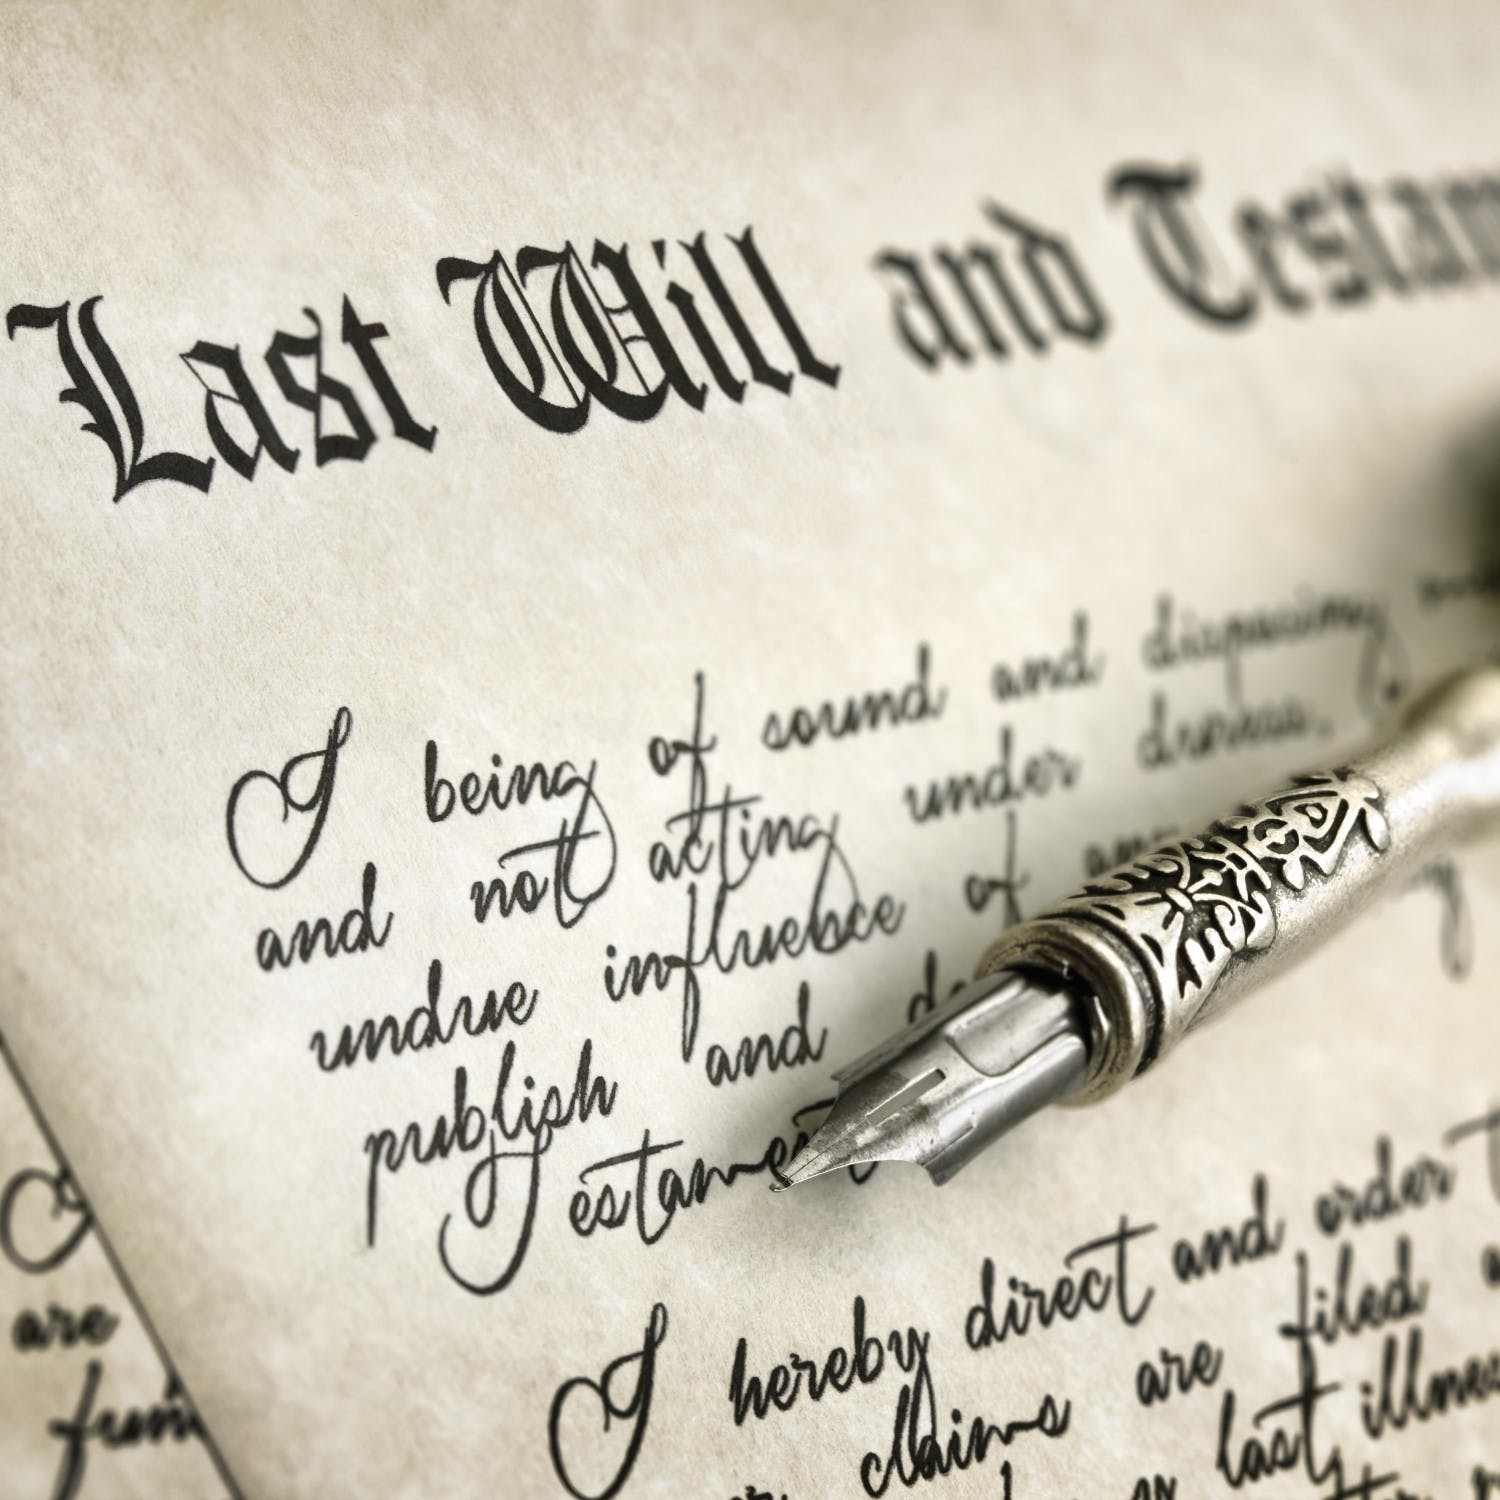 Last Will and Testam
I being of sound and disposing
and not acting under duress,
undue influebce of any
publish and de
estament
I hereby direct and order t
claims are filed a
last illnes
are